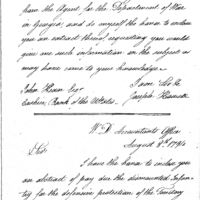 him the Agent for the Department of War
in Georgia, and do myself the honor to inclose
you an extract thereof, requesting you would
give me such information on the subject as
may have come to your knowledge.
I am Sir &c
John Kean Esqr Joseph Howell
Cashier, Bank of the U States.
W. D. Accountants Office
August 9th 1794
Sir
I have the honor to inclose you
an abstract of pay due the dismounted Infan-
try for the defensive protection of the Territory